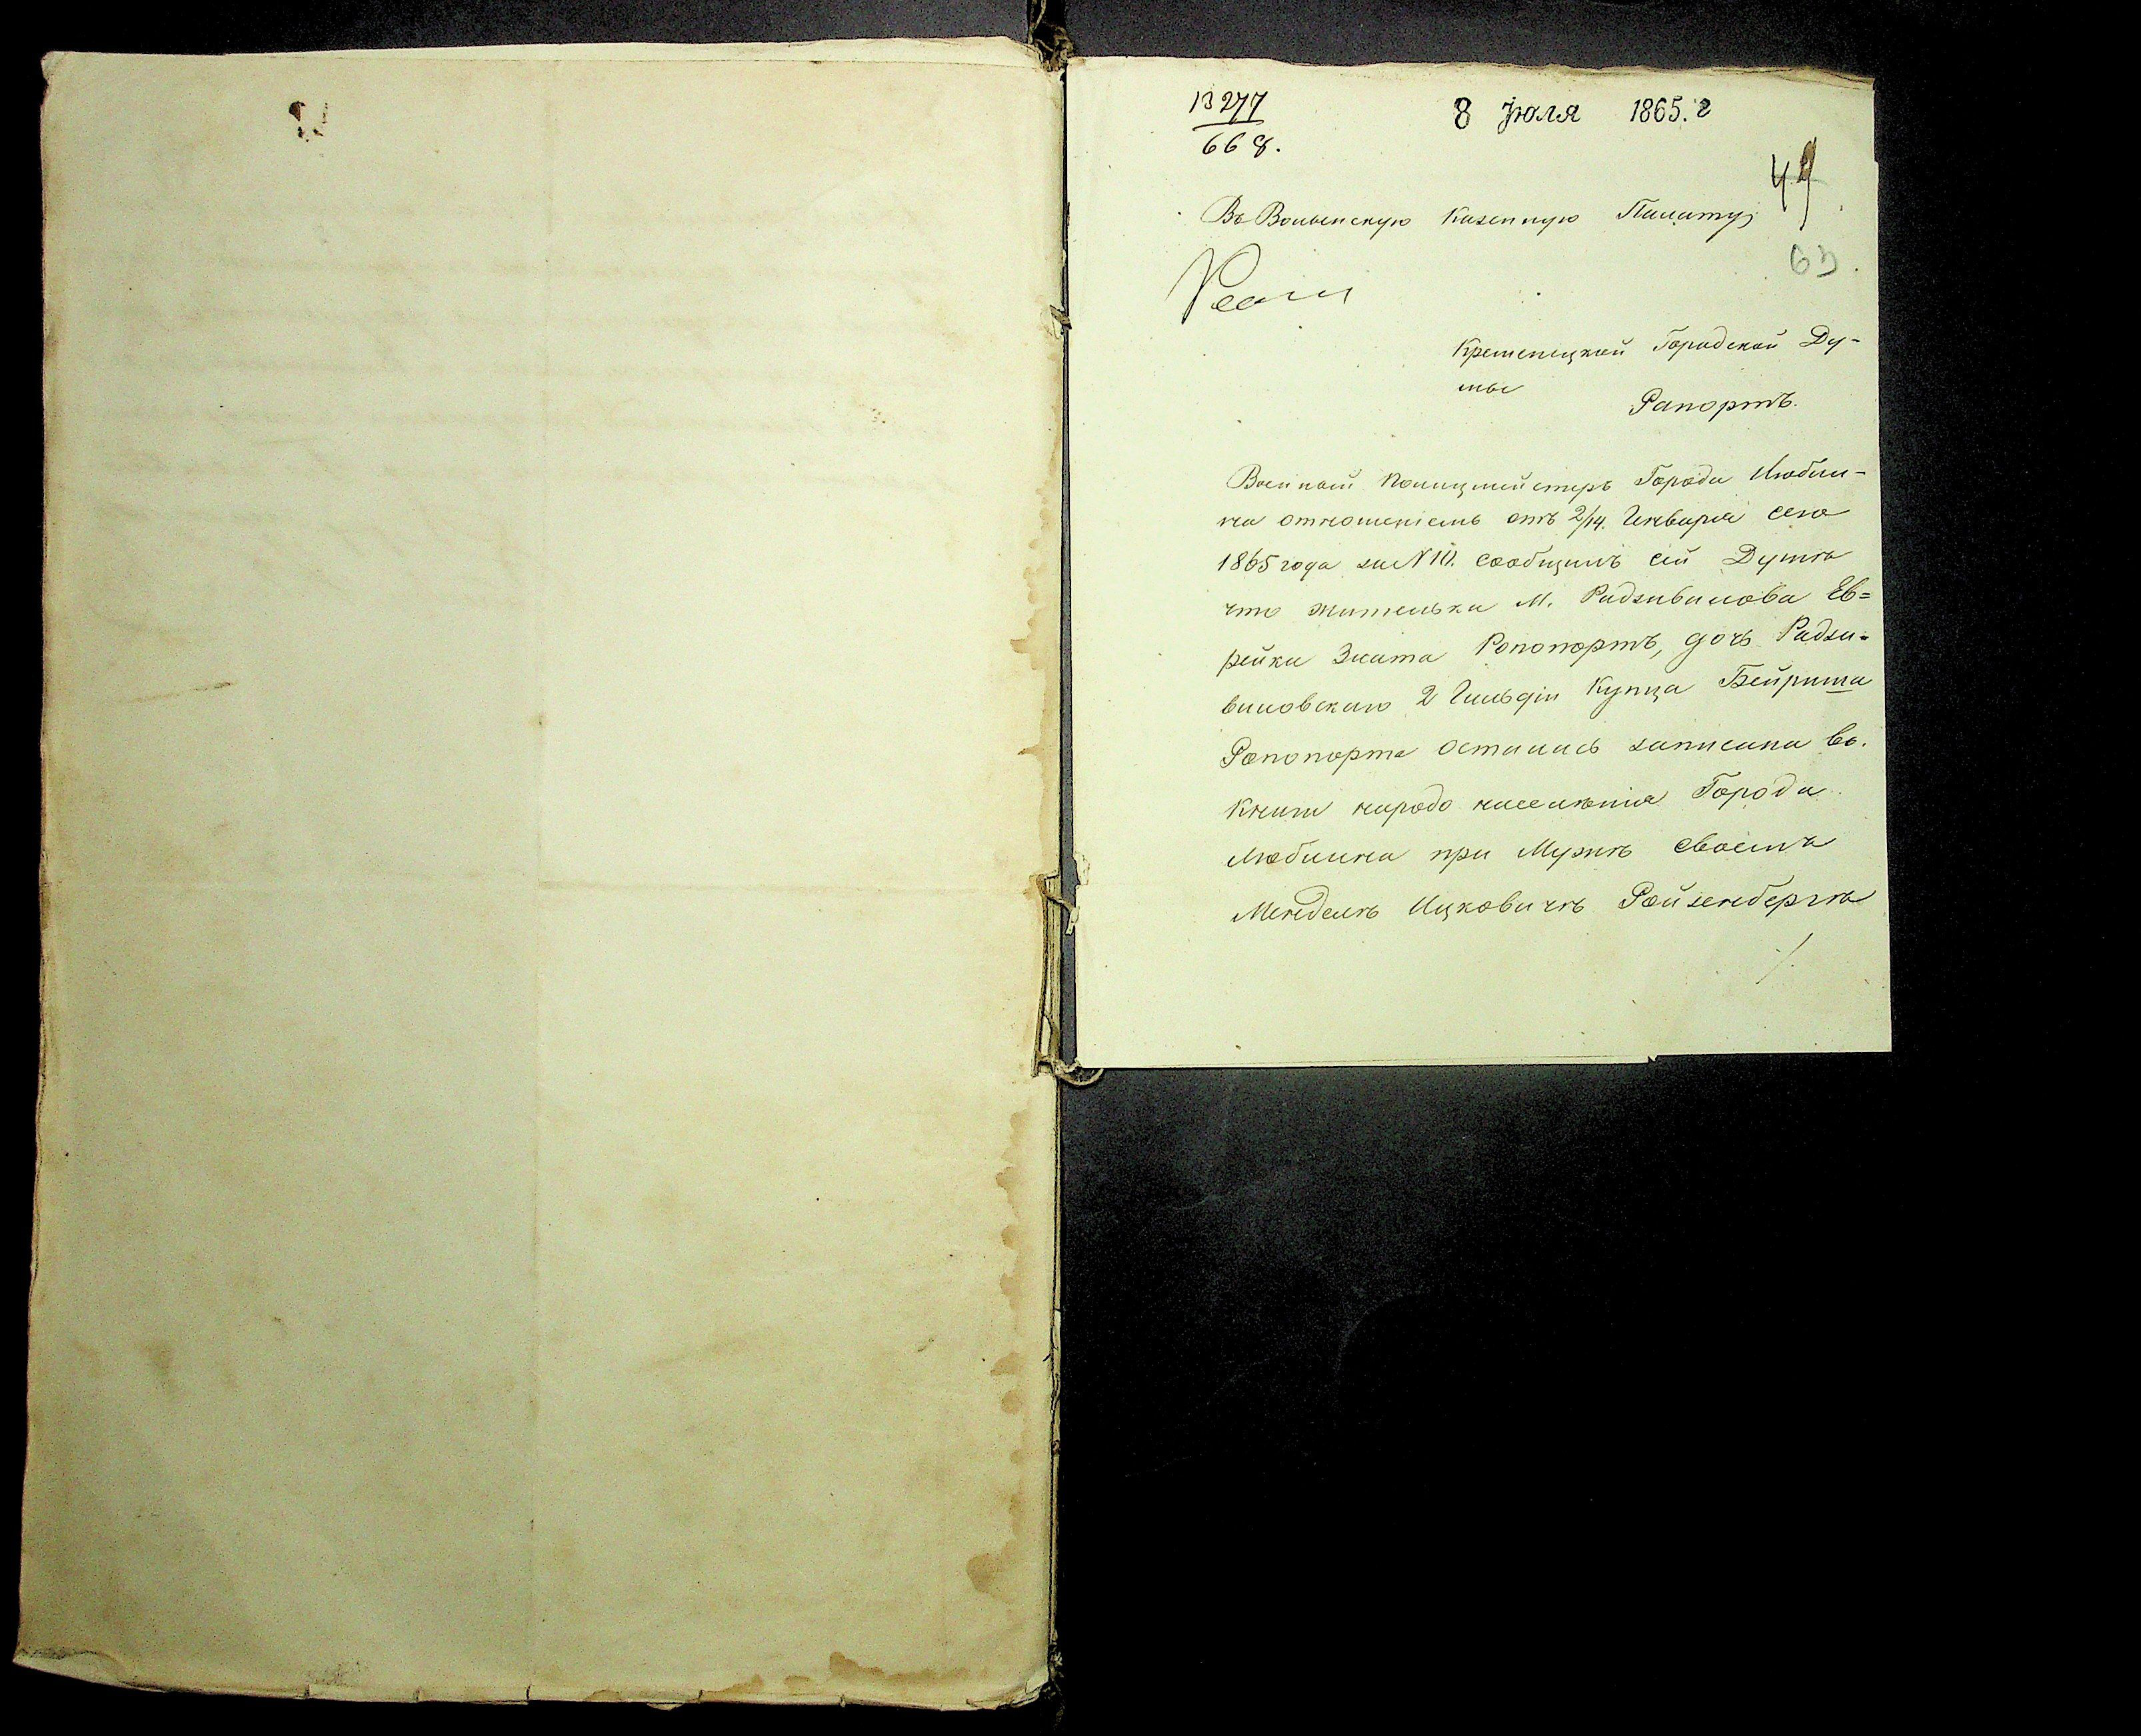 13277
668.
8 Июля 1865. г
49
63.
Въ Волынскую Казенную Палату
Кременецкой Городской Ду-
мы
Рапортъ.
Военный Полицмейстеръ Города Любли-
на отношеніемъ отъ 2/14. Января сего
1865 года за N 10. сообщилъ сей Думѣ
что жителька М. Радзивилова Ев=
рейка Злата Ропопортъ, дочь Радзи=
виловскаго 2 Гильдіи Купца Бейриша
Ропопорта осталась записана въ.
книги народо населенія Города
Люблина при Мужѣ своемъ
Менделѣ Ицковичѣ Ройзенбергѣ